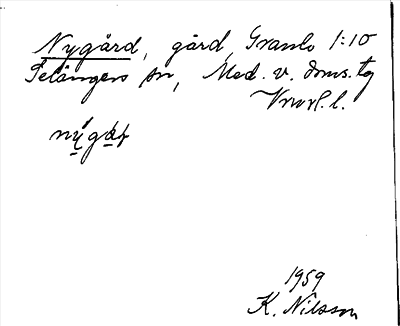 Nygård, gård, Granlo 1:10
Selångers sn, Med. v. doms. tg
Vnorl. l.
nýgạḷ
1959
K. Nilsson